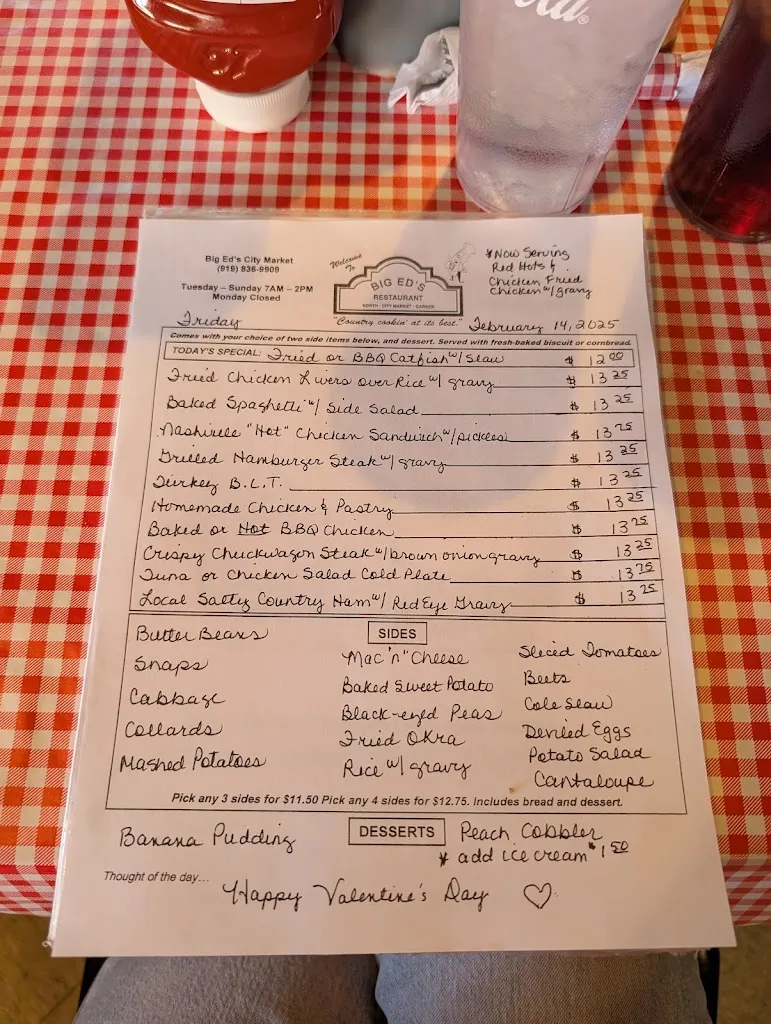 57
ola®
Big Ed's City Market
(919) 836-9909
Tuesday – Sunday 7AM – 2PM
Monday Closed
Welcome To
BIG ED'S
RESTAURANT
NORTH • CITY MARKET • GARNER
"Country cookin' at its best."
*Now Serving
Red Hots &
Chicken Fried
Chicken w/gravy
Friday
February 14, 2025
Comes with your choice of two side items below, and dessert. Served with fresh-baked biscuit or cornbread.
TODAY'S SPECIAL: Fried or BBQ Catfish w/ Slaw $ 12.00
Fried Chicken Livers over Rice w/ gravy $ 13.25
Baked Spaghetti w/ Side Salad $ 13.25
Nashville "Hot" Chicken Sandwich w/pickles $ 13.25
Grilled Hamburger Steak w/ gravy $ 13.25
Turkey B.L.T. $ 13.25
Homemade Chicken & Pastry $ 13.25
Baked or Hot BBQ Chicken $ 13.25
Crispy Chuckwagon Steak w/brown onion gravy $ 13.25
Tuna or Chicken Salad Cold Plate $ 13.25
Local Salty Country Ham w/ Red Eye Gravy $ 13.25
SIDES
Butter Beans
Snaps
Cabbage
Collards
Mashed Potatoes
Mac "n" Cheese
Baked Sweet Potato
Black-eyed Peas
Fried Okra
Rice w/ gravy
Sliced Tomatoes
Beets
Cole Slaw
Deviled Eggs
Potato Salad
Cantaloupe
Pick any 3 sides for $11.50 Pick any 4 sides for $12.75. Includes bread and dessert.
DESSERTS
Banana Pudding
Peach Cobbler
* add ice cream $1.50
Thought of the day...
Happy Valentine's Day ♡